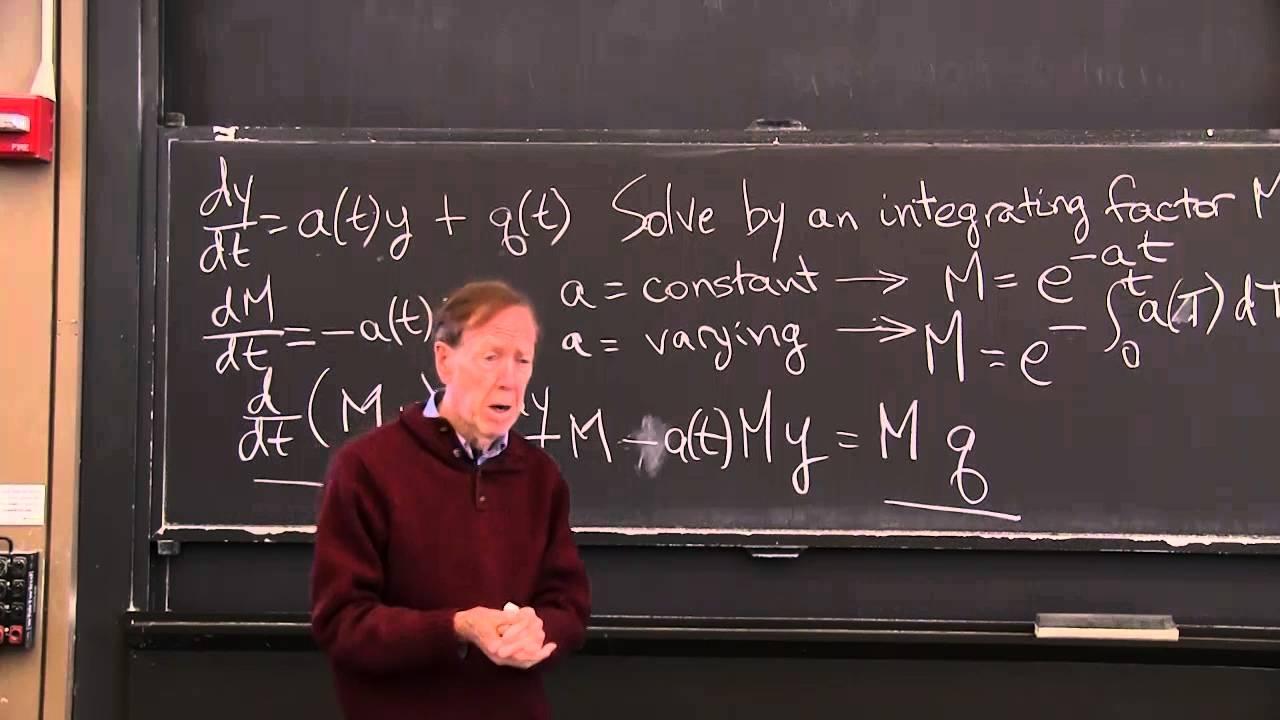 dy/dt = a(t)y + q(t) Solve by an integrating factor M
dM/dt = -a(t)
a = constant → M = e^{-at}
a = varying → M = e^{-∫_0^t a(T) dT}
d/dt (M ) dy/dt M - a(t) M y = M q
FIRE